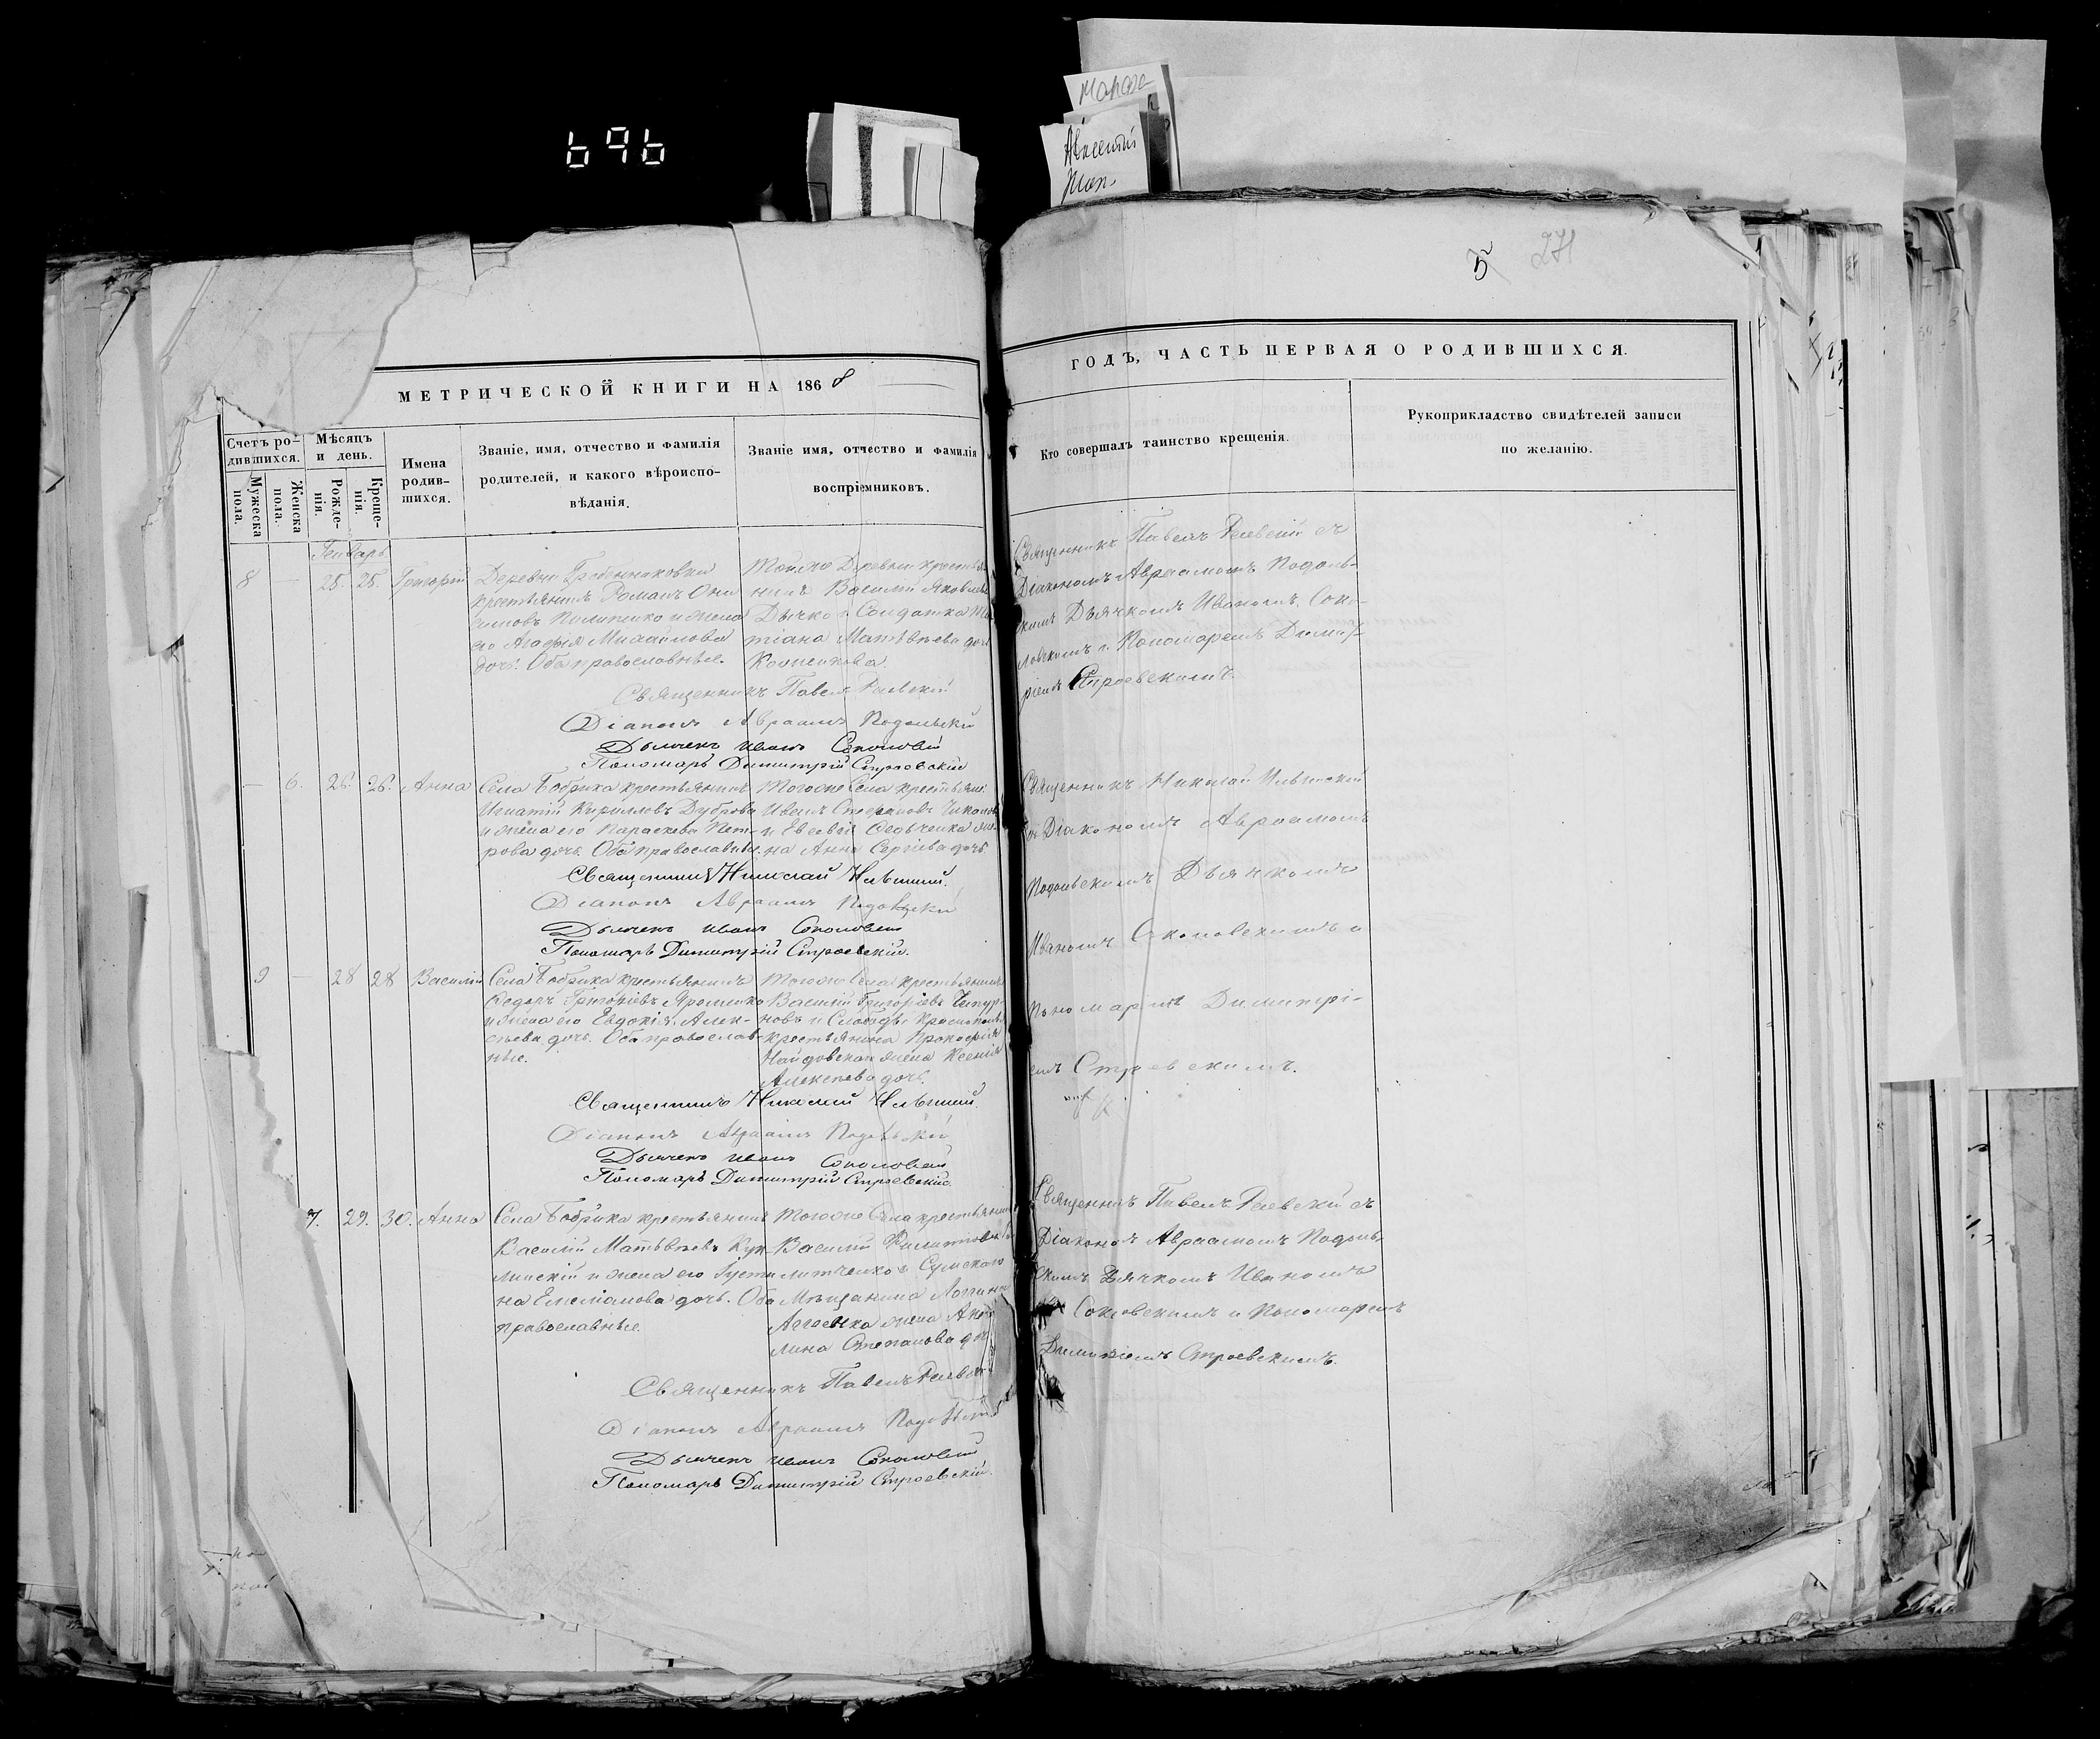 696
Марфа
Авксентий
5
271
МЕТРИЧЕСКОЙ КНИГИ НА 1868
ГОДЪ, ЧАСТЬ ПЕРВАЯ О РОДИВШИХСЯ.
Счетъ ро-
дившихся.
Мужеска
пола.
Женска
пола.
Мѣсяцъ
и день.
Рожде-
нія.
Креще-
нія.
Имена
родив-
шихся.
Званіе, имя, отчество и фамилія
родителей, и какого вѣроиспо-
вѣданія.
Званіе имя, отчество и фамилія
воспріемниковъ.
Кто совершалъ таинство крещенія.
Рукоприкладство свидѣтелей записи
по желанію.
Генварь
8 — 25. 25. Григорій
Деревни Гребенниковки
крестьянинъ Романъ Они
симовъ и жена
его Агафія Михайлова
дочь. Оба православные.
Той же Деревни крестья
нинъ Василій Яковлевъ
Дычко и Солдатка Та
тіана Матвѣева дочь
Священникъ Павелъ Раевскій съ
Діакономъ Авраамомъ Подоль-
скимъ Дьячкомъ Иваномъ Соко-
ловскимъ и Пономаремъ Димит-
ріемъ Строевскимъ.
Священникъ Павелъ Раевскій
Діаконъ Авраамъ Подольскій
Дьячекъ Иванъ Соколовскій
Пономарь Димитрій Строевскій
— 6. 26. 26. Анна
Села Бобрика крестьянинъ
Игнатій Кирилловъ Дуброва
и жена его Параскева Пет-
рова дочь. Оба православные.
Тогоже Села крестьяне:
Иванъ Стефановъ
и Евсевія Федченка же-
на Анна Сергіева дочь.
Священникъ Николай Ильинскій
съ Діакономъ Авраамомъ
Подольскимъ Дьячкомъ
Иваномъ Соколовскимъ и
Пономаремъ Димитрі-
емъ Строевскимъ.
Священникъ Николай Ильинскій.
Діаконъ Авраамъ Подольскій
Дьячекъ Иванъ Соколовскій
Пономарь Димитрій Строевскій.
9 — 28 28 Василій
Села Бобрика крестьянинъ
Федоръ Григоріевъ Яременко
и жена его Евдокія Алек-
сѣева дочь. Оба православ-
ные.
Тогоже Села крестьянинъ
Василій Григоріевъ Чепур-
новъ и Слободы Краснополья
крестьянина Прокофія
Найдовскаго жена Ксенія
Алексѣева дочь.
Священникъ Николай Ильинскій.
Діаконъ Авраамъ Подольскій
Дьячекъ Иванъ Соколовскій
Пономарь Димитрій Строевскій.
7. 29. 30. Анна
Села Бобрика крестьянинъ
Василій Матвѣевъ Куп-
линскій и жена его Густи
на Емеліанова дочь. Оба
православные.
Тогоже Села крестьянинъ
Василій Филиповъ
литченко и Сумскаго
Мѣщанина Логгина
жена Аки
лина Степанова дочь
Священникъ Павелъ Раевскій съ
Діакономъ Авраамомъ Подоль-
скимъ Дьячкомъ Иваномъ
Соколовскимъ и Пономаремъ
Димитріемъ Строевскимъ.
Священникъ Павелъ Раевскій
Діаконъ Авраамъ Подольскій
Дьячекъ Иванъ Соколовскій
Пономарь Димитрій Строевскій.